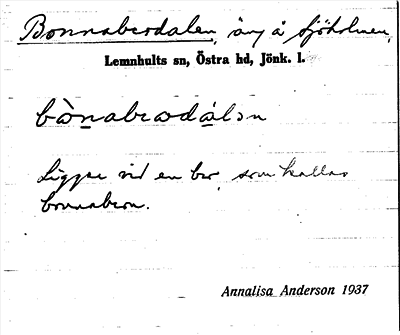 Bonnabrodalen, äng å Sjöholmen,
Lemnhults sn, Östra hd, Jönk. l.
bònabrodálən
Ligger vid en bro, som kallas
bonnabron.
Annalisa Anderson 1937